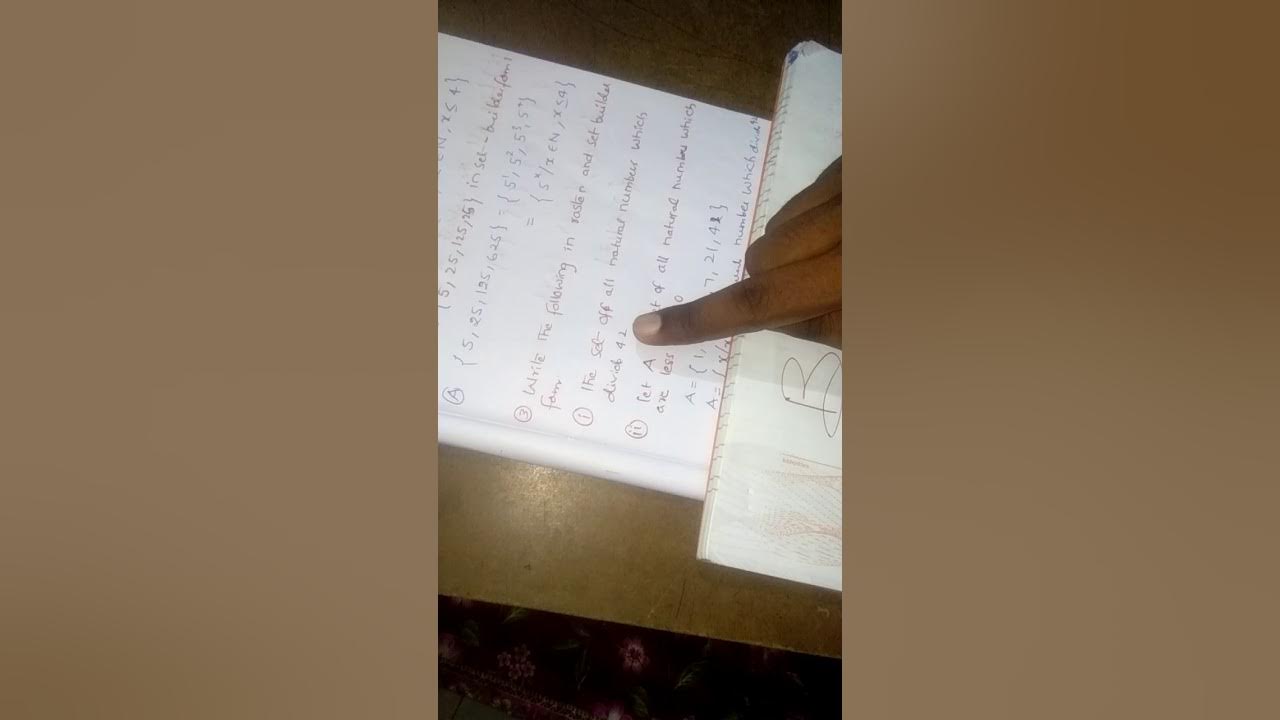 ∈ N, x ≤ 4}
{5, 25, 125, 25} in set-builder form
Ⓐ {5, 25, 125, 625} = {5¹, 5², 5³, 5⁴}
= {5ˣ/x ∈ N, x ≤ 4}
③ Write the following in roster and set builder
form
ⓘ The set off all natural numbers which
divide 42
ⓘⓘ let A of all natural number which
are less 0
A = {1, 7, 21, 42}
A = {x/x number which divide
B